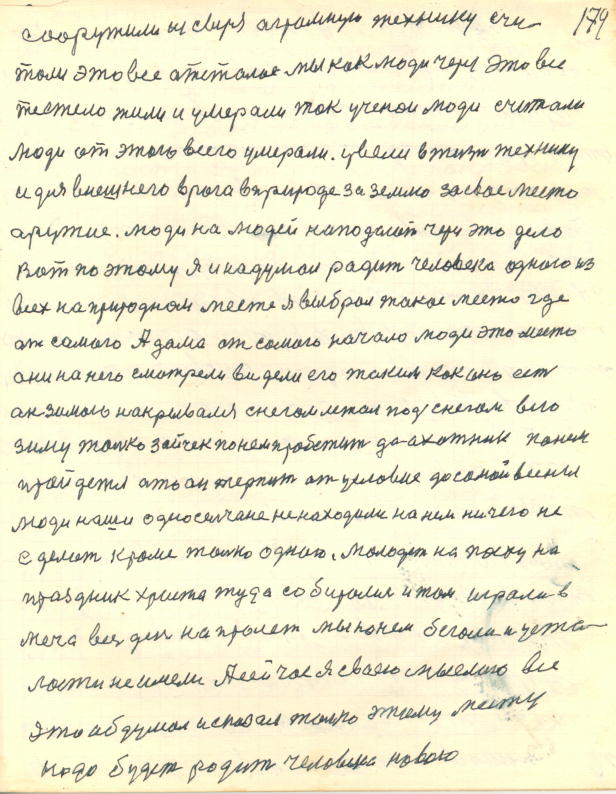 179
сооружили из сваря агромную технику счи
толи это все атсталае мы как люди через это все
тежело жили и умерали так ученои люди считали
люди от этого всего умерали. ввели в жизн технику
и для внешнего врога в природе за землю за свае место
аружие. люди на людей нападают через это дело
Вот по этому я и надумал радит человека одного из
всех на природном месте я выбрал такое место где
от самого Адама от самого начало люди это место
они на него смотрели видели его таким как оно ест
ан зимою накрывался снегом лежал под снегом всю
зиму только зайчек по нем пробежит да ахотник по нем
пройдется а то он терпит от условие до самой весны
люди наши односелчане не находили на нем ничего не
сделат кроме толко одного. Молодеж на паску на
праздник христа туда собиролися и там играли в
мяча вес ден на пролет мы по нем бегали и уста
лости не имели А сейчас я сваею мыслию все
это абдумал и сказал толко этому месту
надо будет родит человека новаго